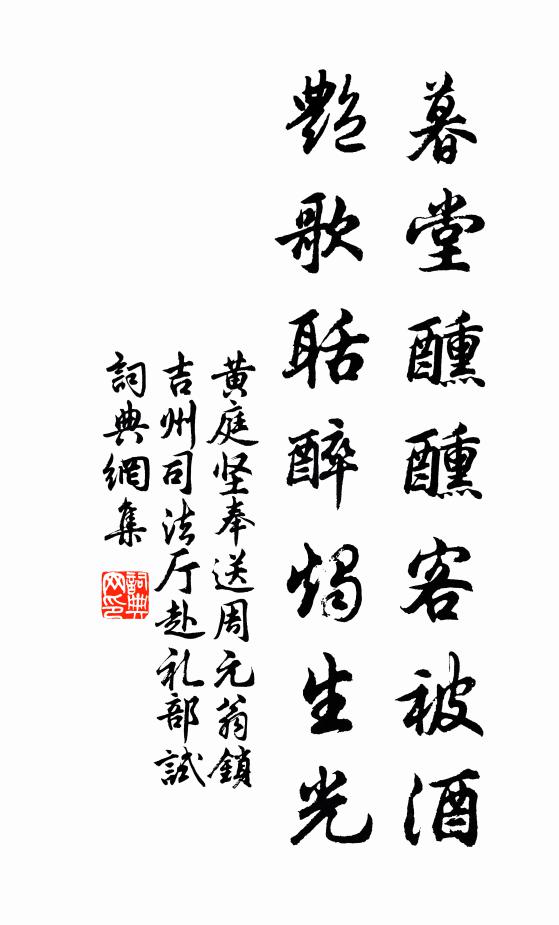 暮堂醺醺客被酒
艶歌聒醉燭生光
黄庭坚奉送周元翁鎖
吉州司法厅赴礼部試
詞典網集
詞典网印